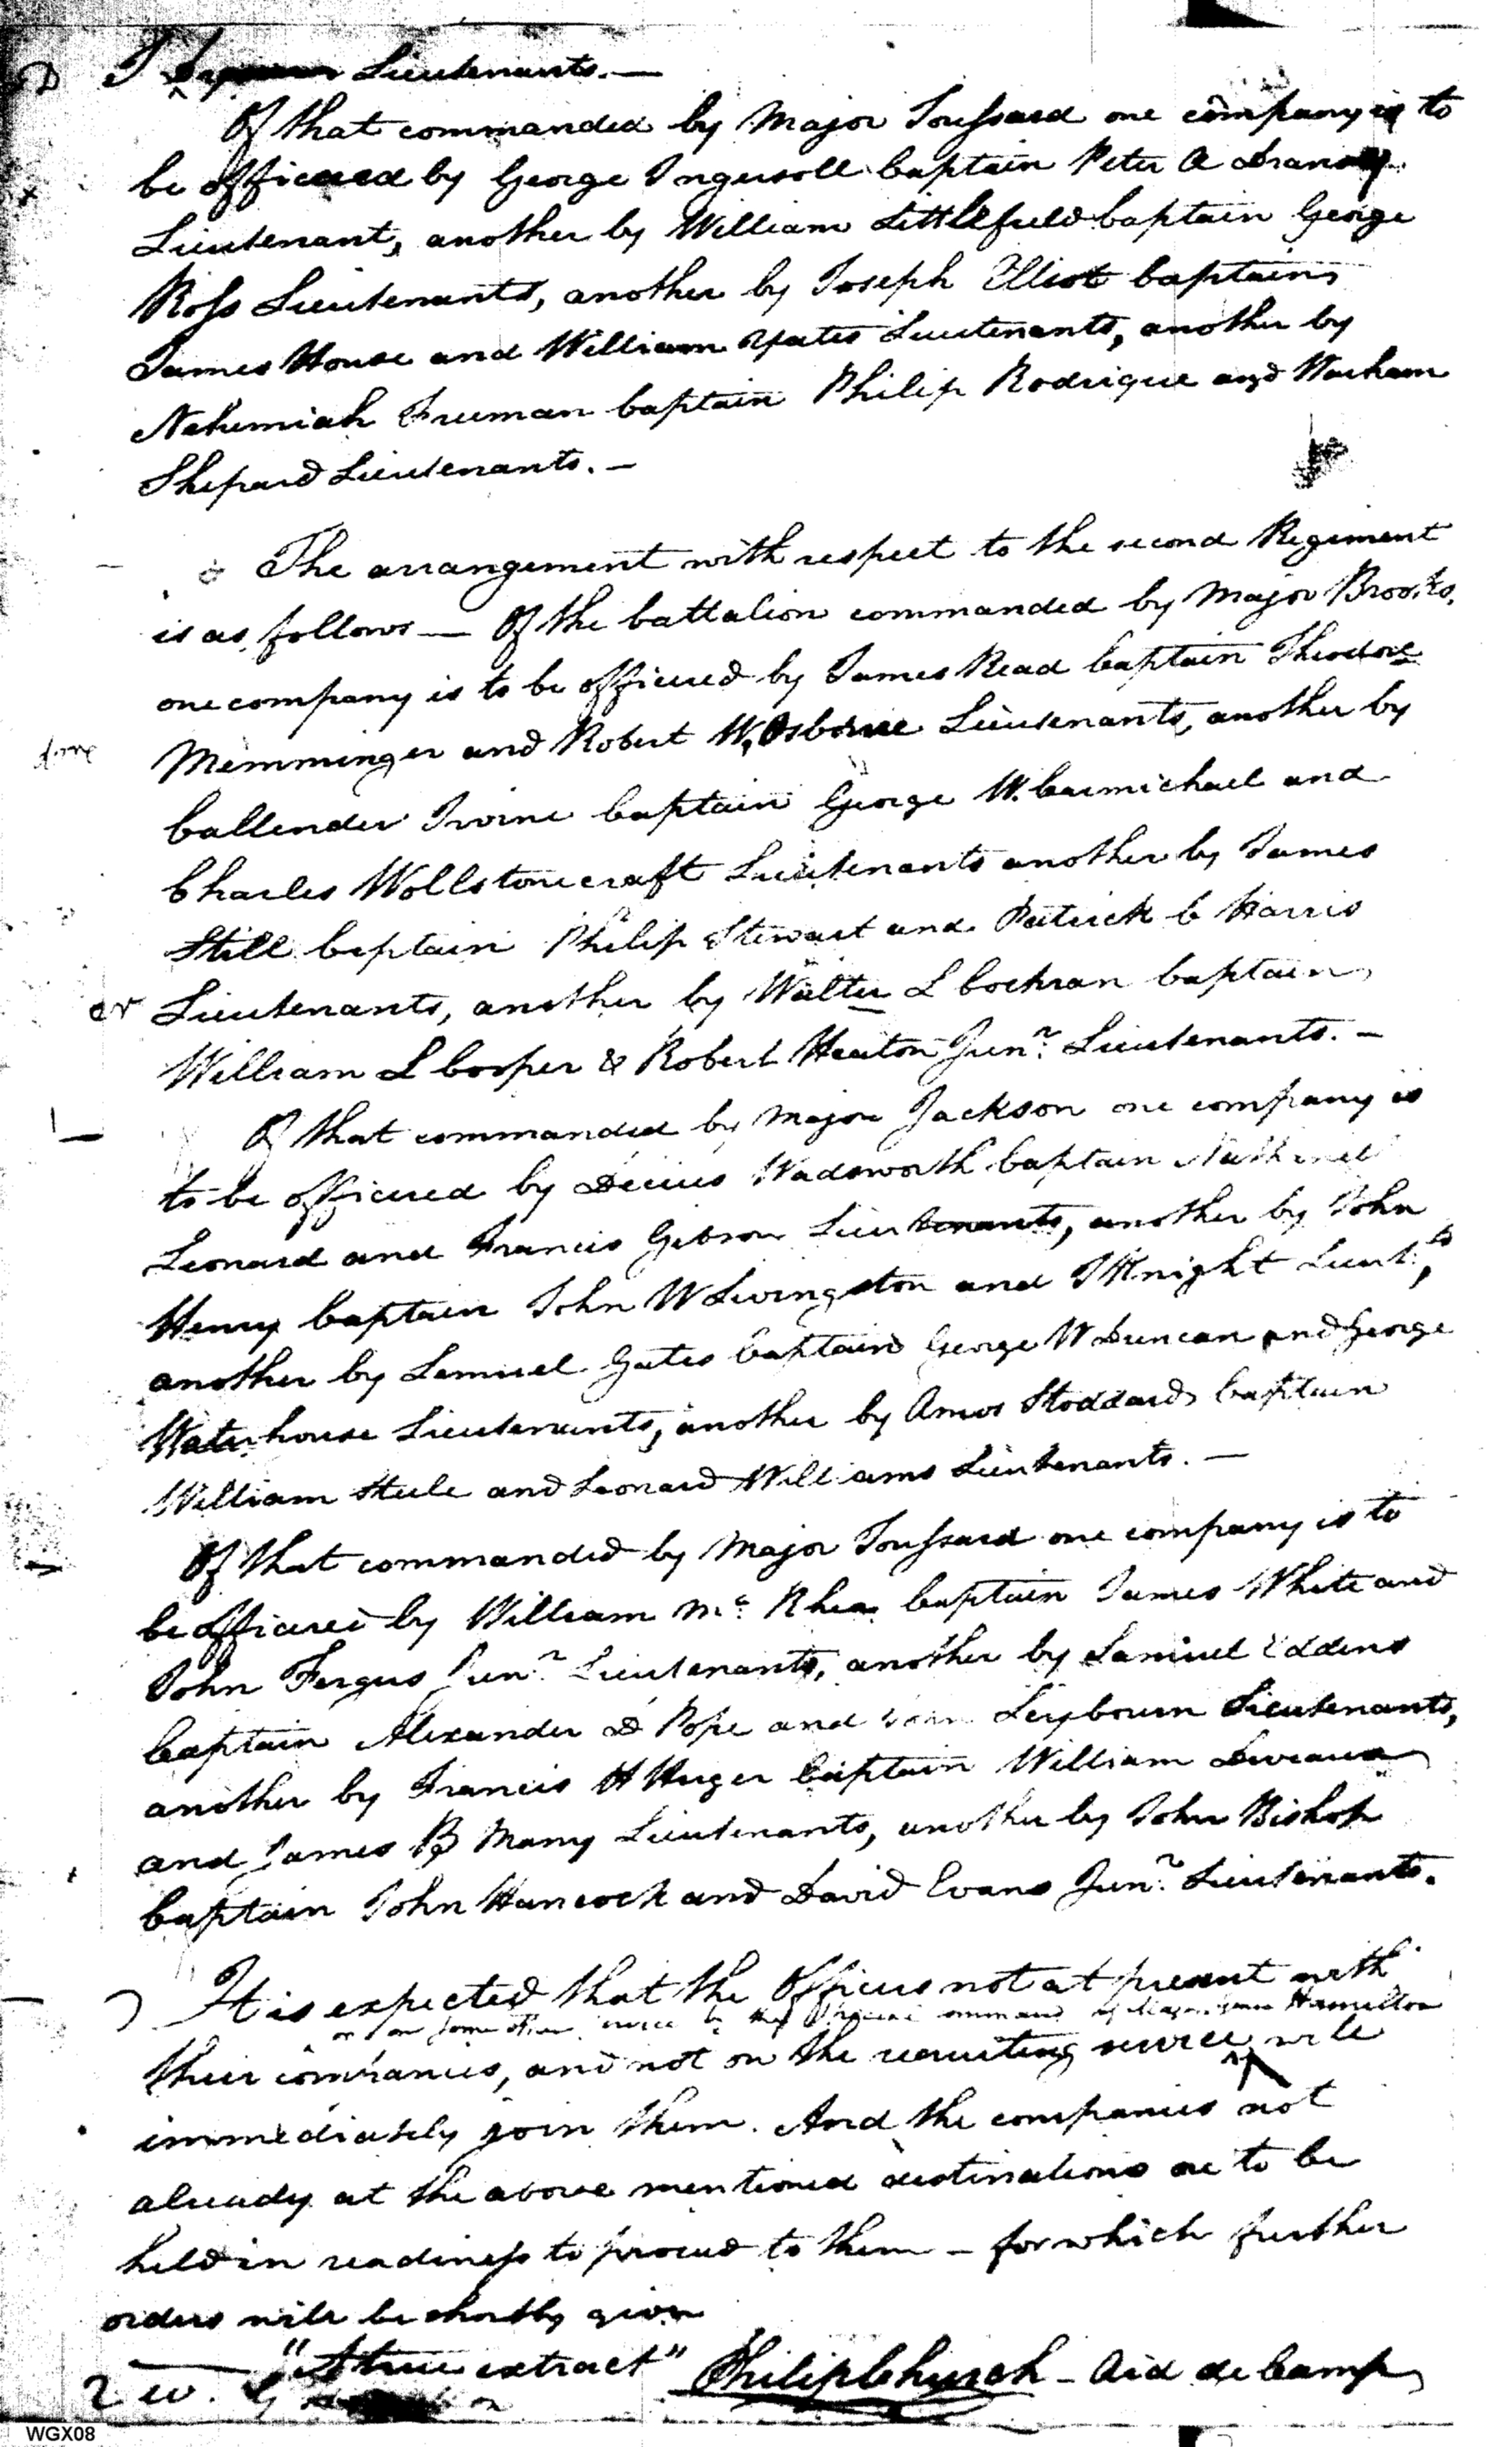 Lieutenants.—
Of that commanded by Major Toussard one company is to
be officered by George Ingersoll Captain Peter A Dransy
Lieutenant, another by William Littlefield Captain George
Ross Lieutenants, another by Joseph Elliot Captain
James House and William Yates Lieutenants, another by
Nehemiah Freeman Captain Philip Rodrigue and Warham
Shepard Lieutenants. —
The arrangement with respect to the second Regiment
is as follows — Of the battalion commanded by Major Brooks,
one company is to be officered by James Read Captain Theodore
Memminger and Robert W, Osborne Lieutenants, another by
Callender Irvine Captain George W. Carmichael and
Charles Wollstonecraft Lieutenants another by James
Still Captain Philip Stewart and Patrick C Harris
Lieutenants, another by Walter L Cochran Captain
William L Cooper & Robert Heaton Junr. Lieutenants. —
Of that commanded by Major Jackson one company is
to be officered by Decius Wadsworth Captain Nathaniel
Leonard and Francis Gibson Lieutenants, another by John
Henry Captain John W Livingston and J Knight Lieuts,
another by Lemuel Gates Captain George W Duncan and George
Waterhouse Lieutenants, another by Amos Stoddard Captain
William Steele and Leonard Williams Lieutenants. —
Of that commanded by Major Toussard one company is to
be officered by William Mc. Rhea Captain James White and
John Fergus Junr. Lieutenants, another by Samuel Eddens
Captain Alexander D Pope and Leybourn Lieutenants,
another by Francis H Huger Captain William Deveaux
and James B Many Lieutenants, another by John Bishop
Captain John Hancock and David Evans Junr. Lieutenants.
It is expected that the Officers not at present with
or on some other service by the special command of Major Genl Hamilton
their companies, and not on the recruiting service will
immediately join them. And the companies not
already at the above mentioned destinations are to be
held in readiness to proceed to them — for which further
orders will be shortly given
"A true extract" Philip Church – Aid de Camp
WGX08